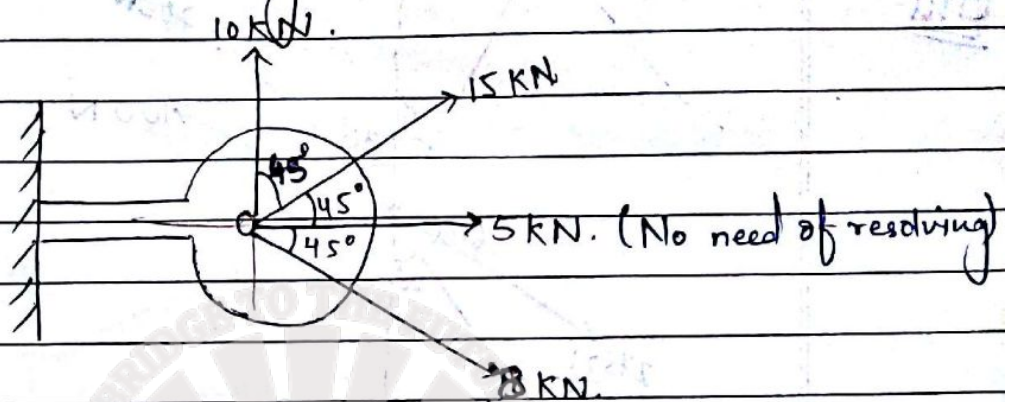 10 KN.
15 KN
45°
45°
5 KN. (No need of resolving)
45°
8 KN.